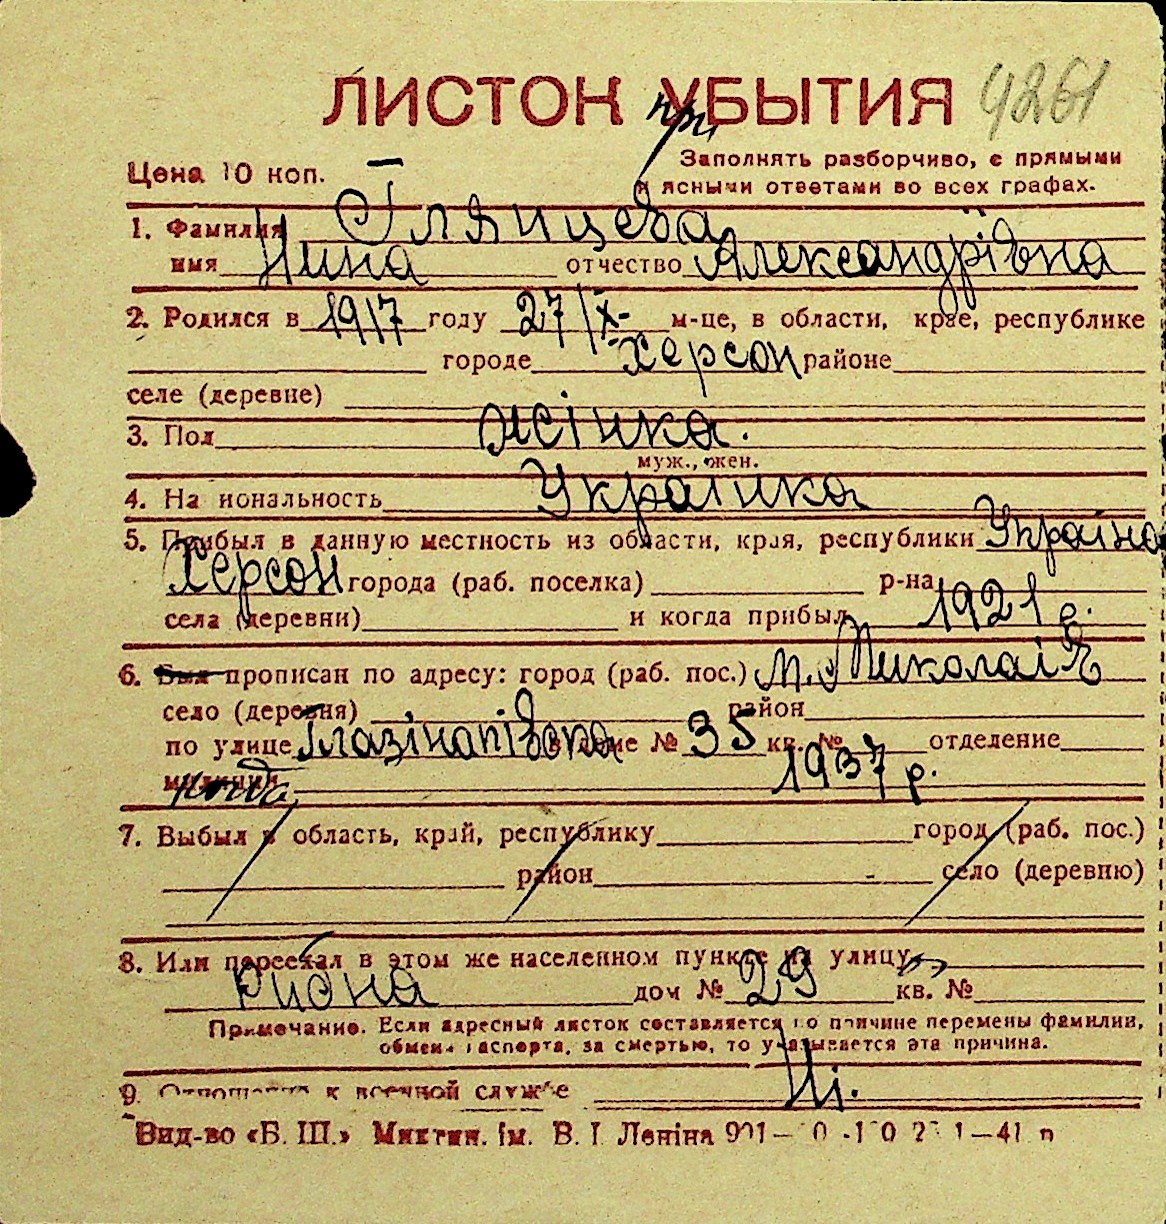 ЛИСТОК УБЫТИЯ 4261
при
Цена 10 коп.
Заполнять разборчиво, с прямыми
и ясными ответами во всех графах.
1. Фамилия Глянцева
имя Нина отчество Александрівна
2. Родился в 1917 году 27/X- м-це, в области, крае, республике
городе Херсон районе
селе (деревне)
3. Пол жінка.
муж., жен.
4. На иональность Українка
5. Прибыл в данную местность из области, края, республики Україна
Херсон города (раб. поселка) р-на
села (деревни) и когда прибыл 1921 р.
6. Был прописан по адресу: город (раб. пос.) м. Миколаїв
село (деревня) район
по улице Глазінапівска в доме № 35 кв. № отделение
милиции когда 1937 р.
7. Выбыл в область, край, республику город (раб. пос.)
район село (деревню)
8. Или переехал в этом же населенном пункте на улицу
Рибна дом № 29 кв. №
Примечание. Если адресный листок составляется по причине перемены фамилии,
обмена паспорта, за смертью, то указывается эта причина.
9. Отношение к военной службе Ні.
Вид-во «Б. Ш.» Микгиж. ім. В. І. Леніна